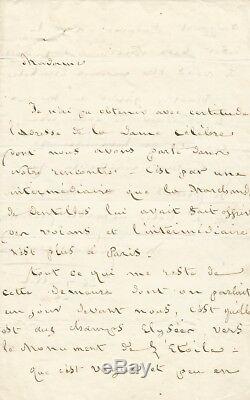 Madame
Je n'ai pu obtenir avec certitude
l'adresse de la dame célèbre
dont nous avons parlé dans
votre rencontre - c'est par une
intermédiaire que la Marchande
de dentelles lui avait fait offrir
ses voians et l'intermédiaire
n'est plus à Paris.
Tout ce qui me reste de
cette demeure dont on parlait
un jour devant nous, c'est qu'elle
est aux champs Elysées vers
le Monument de l'Etoile -
que c'est vague et peu en